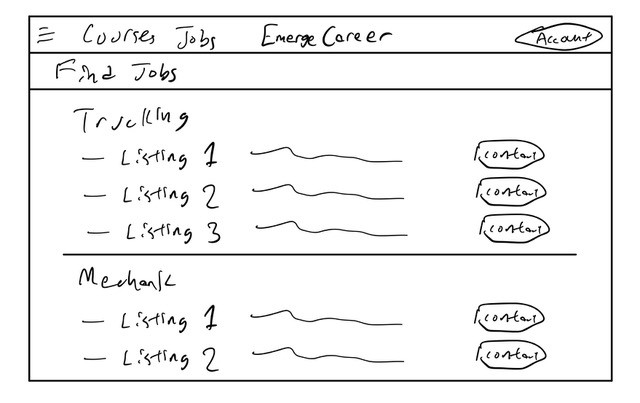 Courses Jobs Emerge Career Account
Find Jobs
Trucking
— Listing 1 Contact
— Listing 2 Contact
— Listing 3 Contact
Mechanic
— Listing 1 Contact
— Listing 2 Contact